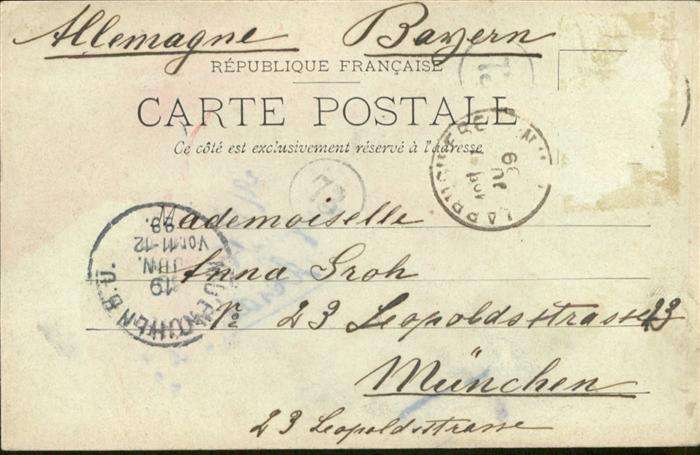 Allemagne Bayern
RÉPUBLIQUE FRANÇAISE
CARTE POSTALE
Ce côté est exclusivement réservé à l'adresse
73
Mademoiselle
Anna Groh
No 23 Leopoldsstrasse 23
München
23 Leopoldsstrasse
MUENCHEN B.U.
19
JAN.
Vor.11-12
99.